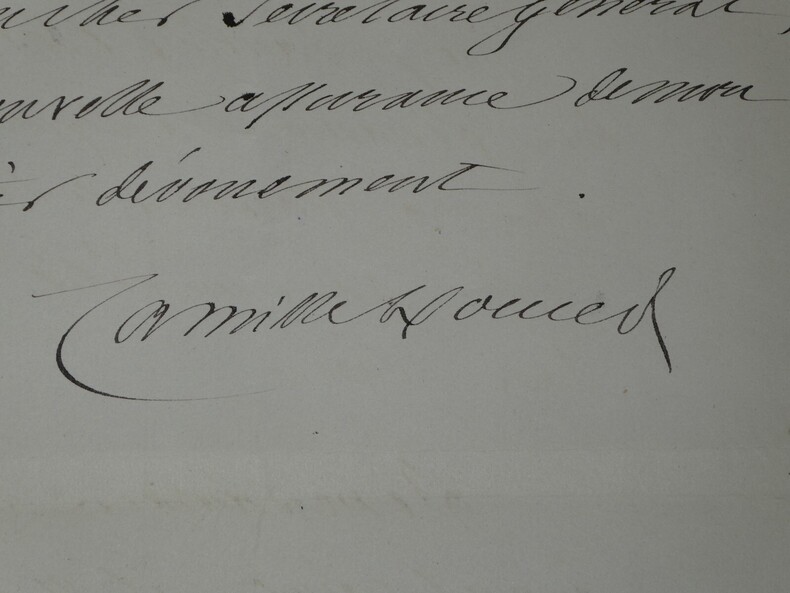 cher Secrétaire général,
nouvelle assurance de mon
dévouement.
Camille Doucet